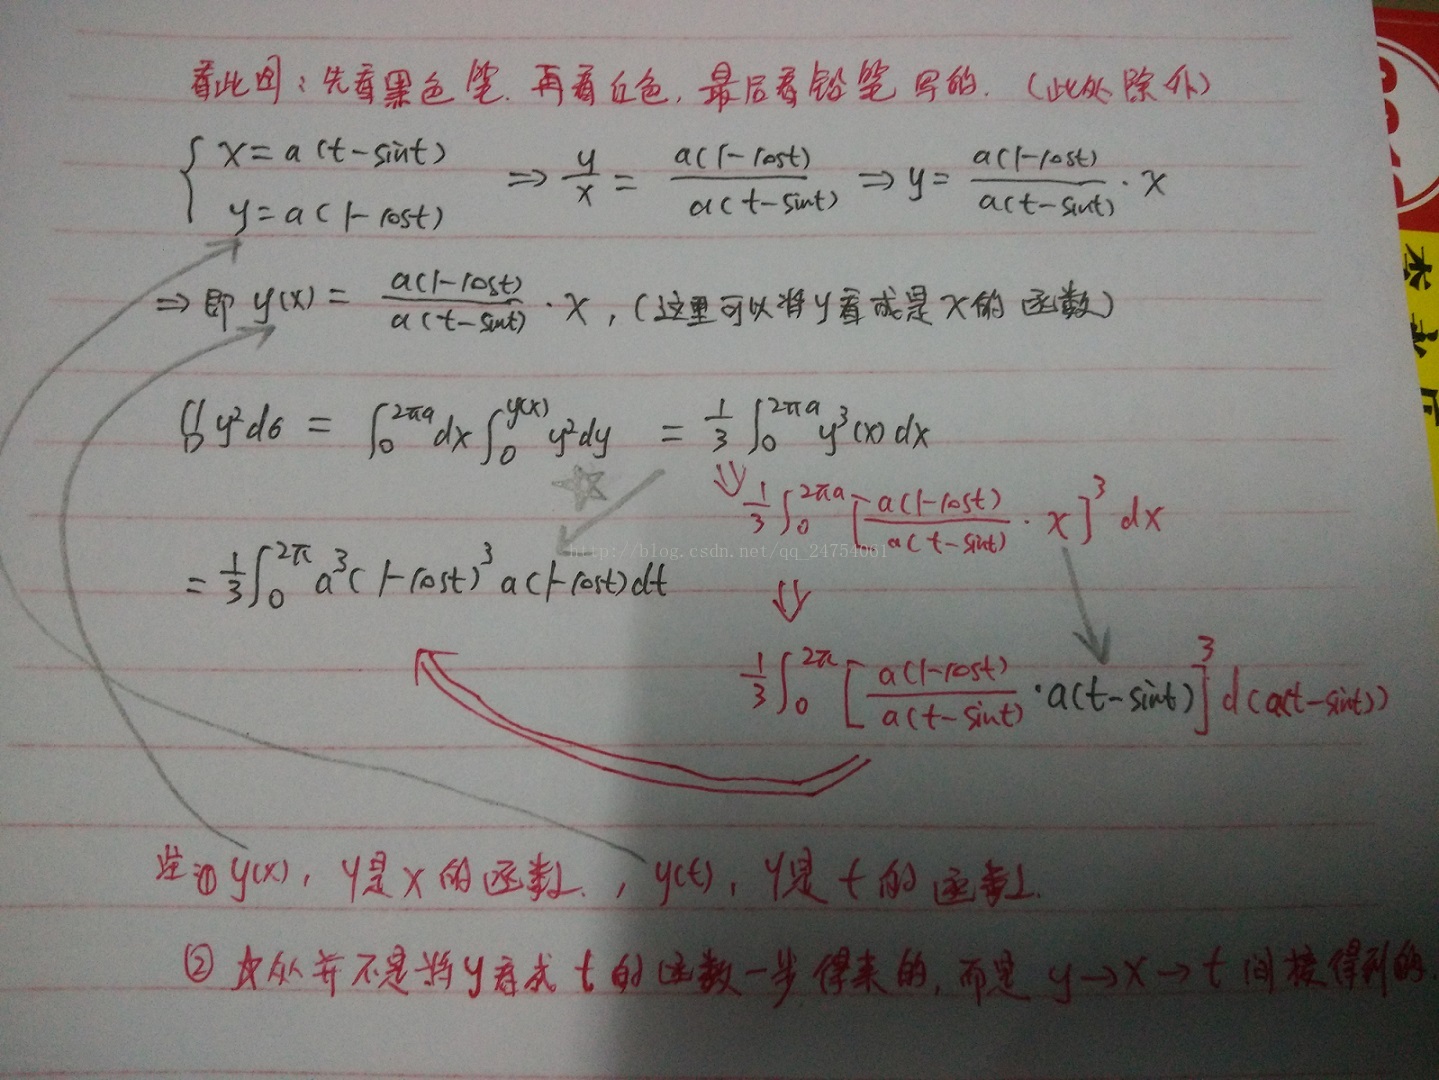 看此图：先看黑色笔.再看红色，最后看铅笔写的.（此处除外）
{ x=a(t-sint)
y=a(1-cost)
⇒ y/x = a(1-cost)/a(t-sint) ⇒ y= a(1-cost)/a(t-sint) · x
⇒ 即 y(x) = a(1-cost)/a(t-sint) · x，（这里可以将y看成是x的函数）
∬_D y²dσ = ∫_0^{2πa} dx ∫_0^{y(x)} y²dy = 1/3 ∫_0^{2πa} y³(x)dx
⇓ 1/3 ∫_0^{2πa} [a(1-cost)/a(t-sint) · x]³ dx
http://blog.csdn.net/qq_24754061
= 1/3 ∫_0^{2π} a³(1-cost)³ a(1-cost)dt
⇓
1/3 ∫_0^{2π} [a(1-cost)/a(t-sint) · a(t-sint)]³ d(a(t-sint))
注:① y(x)，y是x的函数.，y(t)，y是t的函数.
② 此处并不是将y看成t的函数一步得来的，而是 y→x→t 间接得到的.